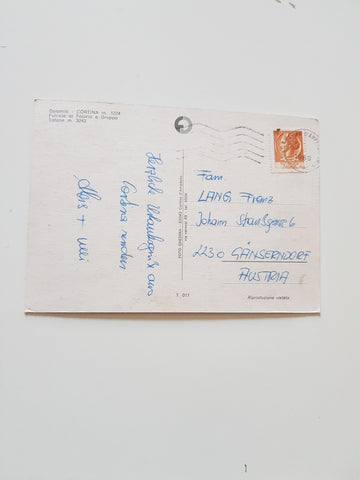 Dolomiti - CORTINA m. 1224
Funivia di Faloria e Gruppo
Tofane m. 3243
Herzliche Urlaubsgrüße aus
Cortina senden
Alois + Willi
FOTO GHEDINA - 32043 Cortina d'Ampezzo
T 017
Fam.
LANG Franz
Johann Straußgasse 6
2230 GÄNSERNDORF
AUSTRIA
Riproduzione vietata